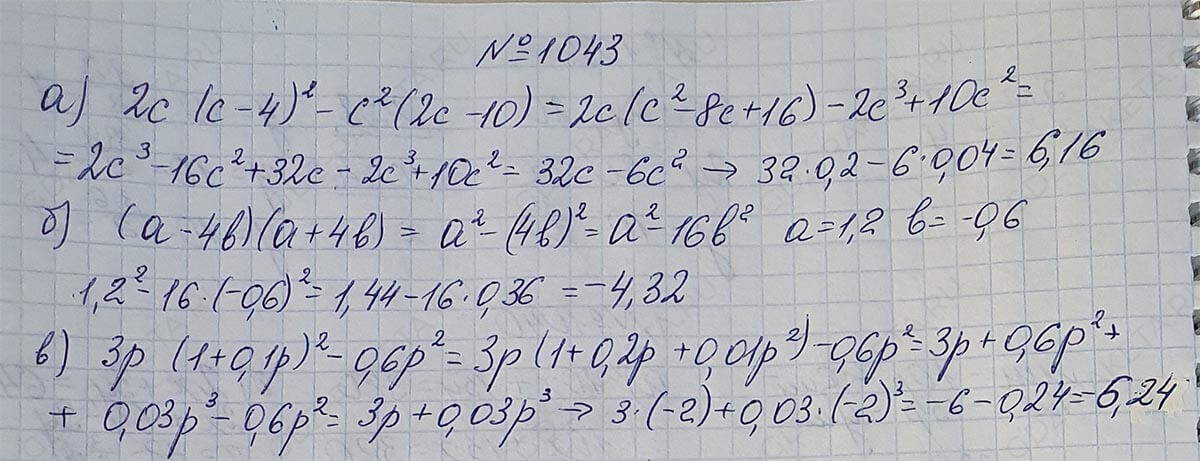 №1043
а) 2c (c-4)² - c²(2c-10) = 2c(c²-8c+16) - 2c³+10c² =
= 2c³-16c²+32c - 2c³+10c² = 32c - 6c² → 32·0,2 - 6·0,04 = 6,16
б) (a-4b)(a+4b) = a²-(4b)² = a²-16b² a=1,2 b=-0,6
1,2²-16·(-0,6)² = 1,44-16·0,36 = -4,32
в) 3p (1+0,1p)² - 0,6p² = 3p(1+0,2p+0,01p²)-0,6p² = 3p+0,6p²+
+ 0,03p³-0,6p² = 3p+0,03p³ → 3·(-2)+0,03·(-2)³ = -6-0,24=-6,24